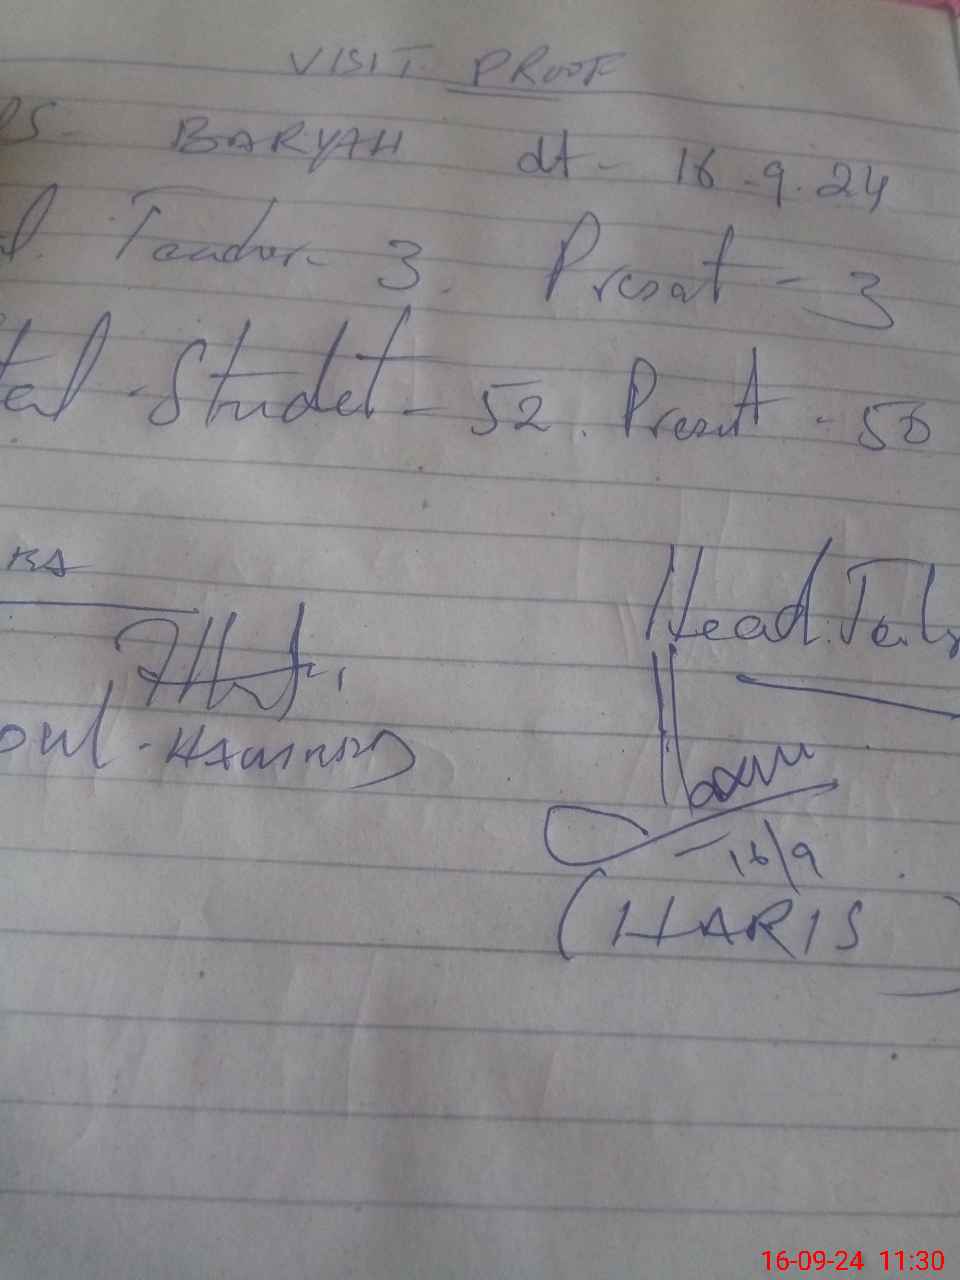 VISIT PROOF
PS - BARYAH dt - 16.9.24
Teacher - 3. Present - 3
Total - Student - 52. Present - 50
Head Tehr
16/9
(HARIS)
16-09-24 11:30